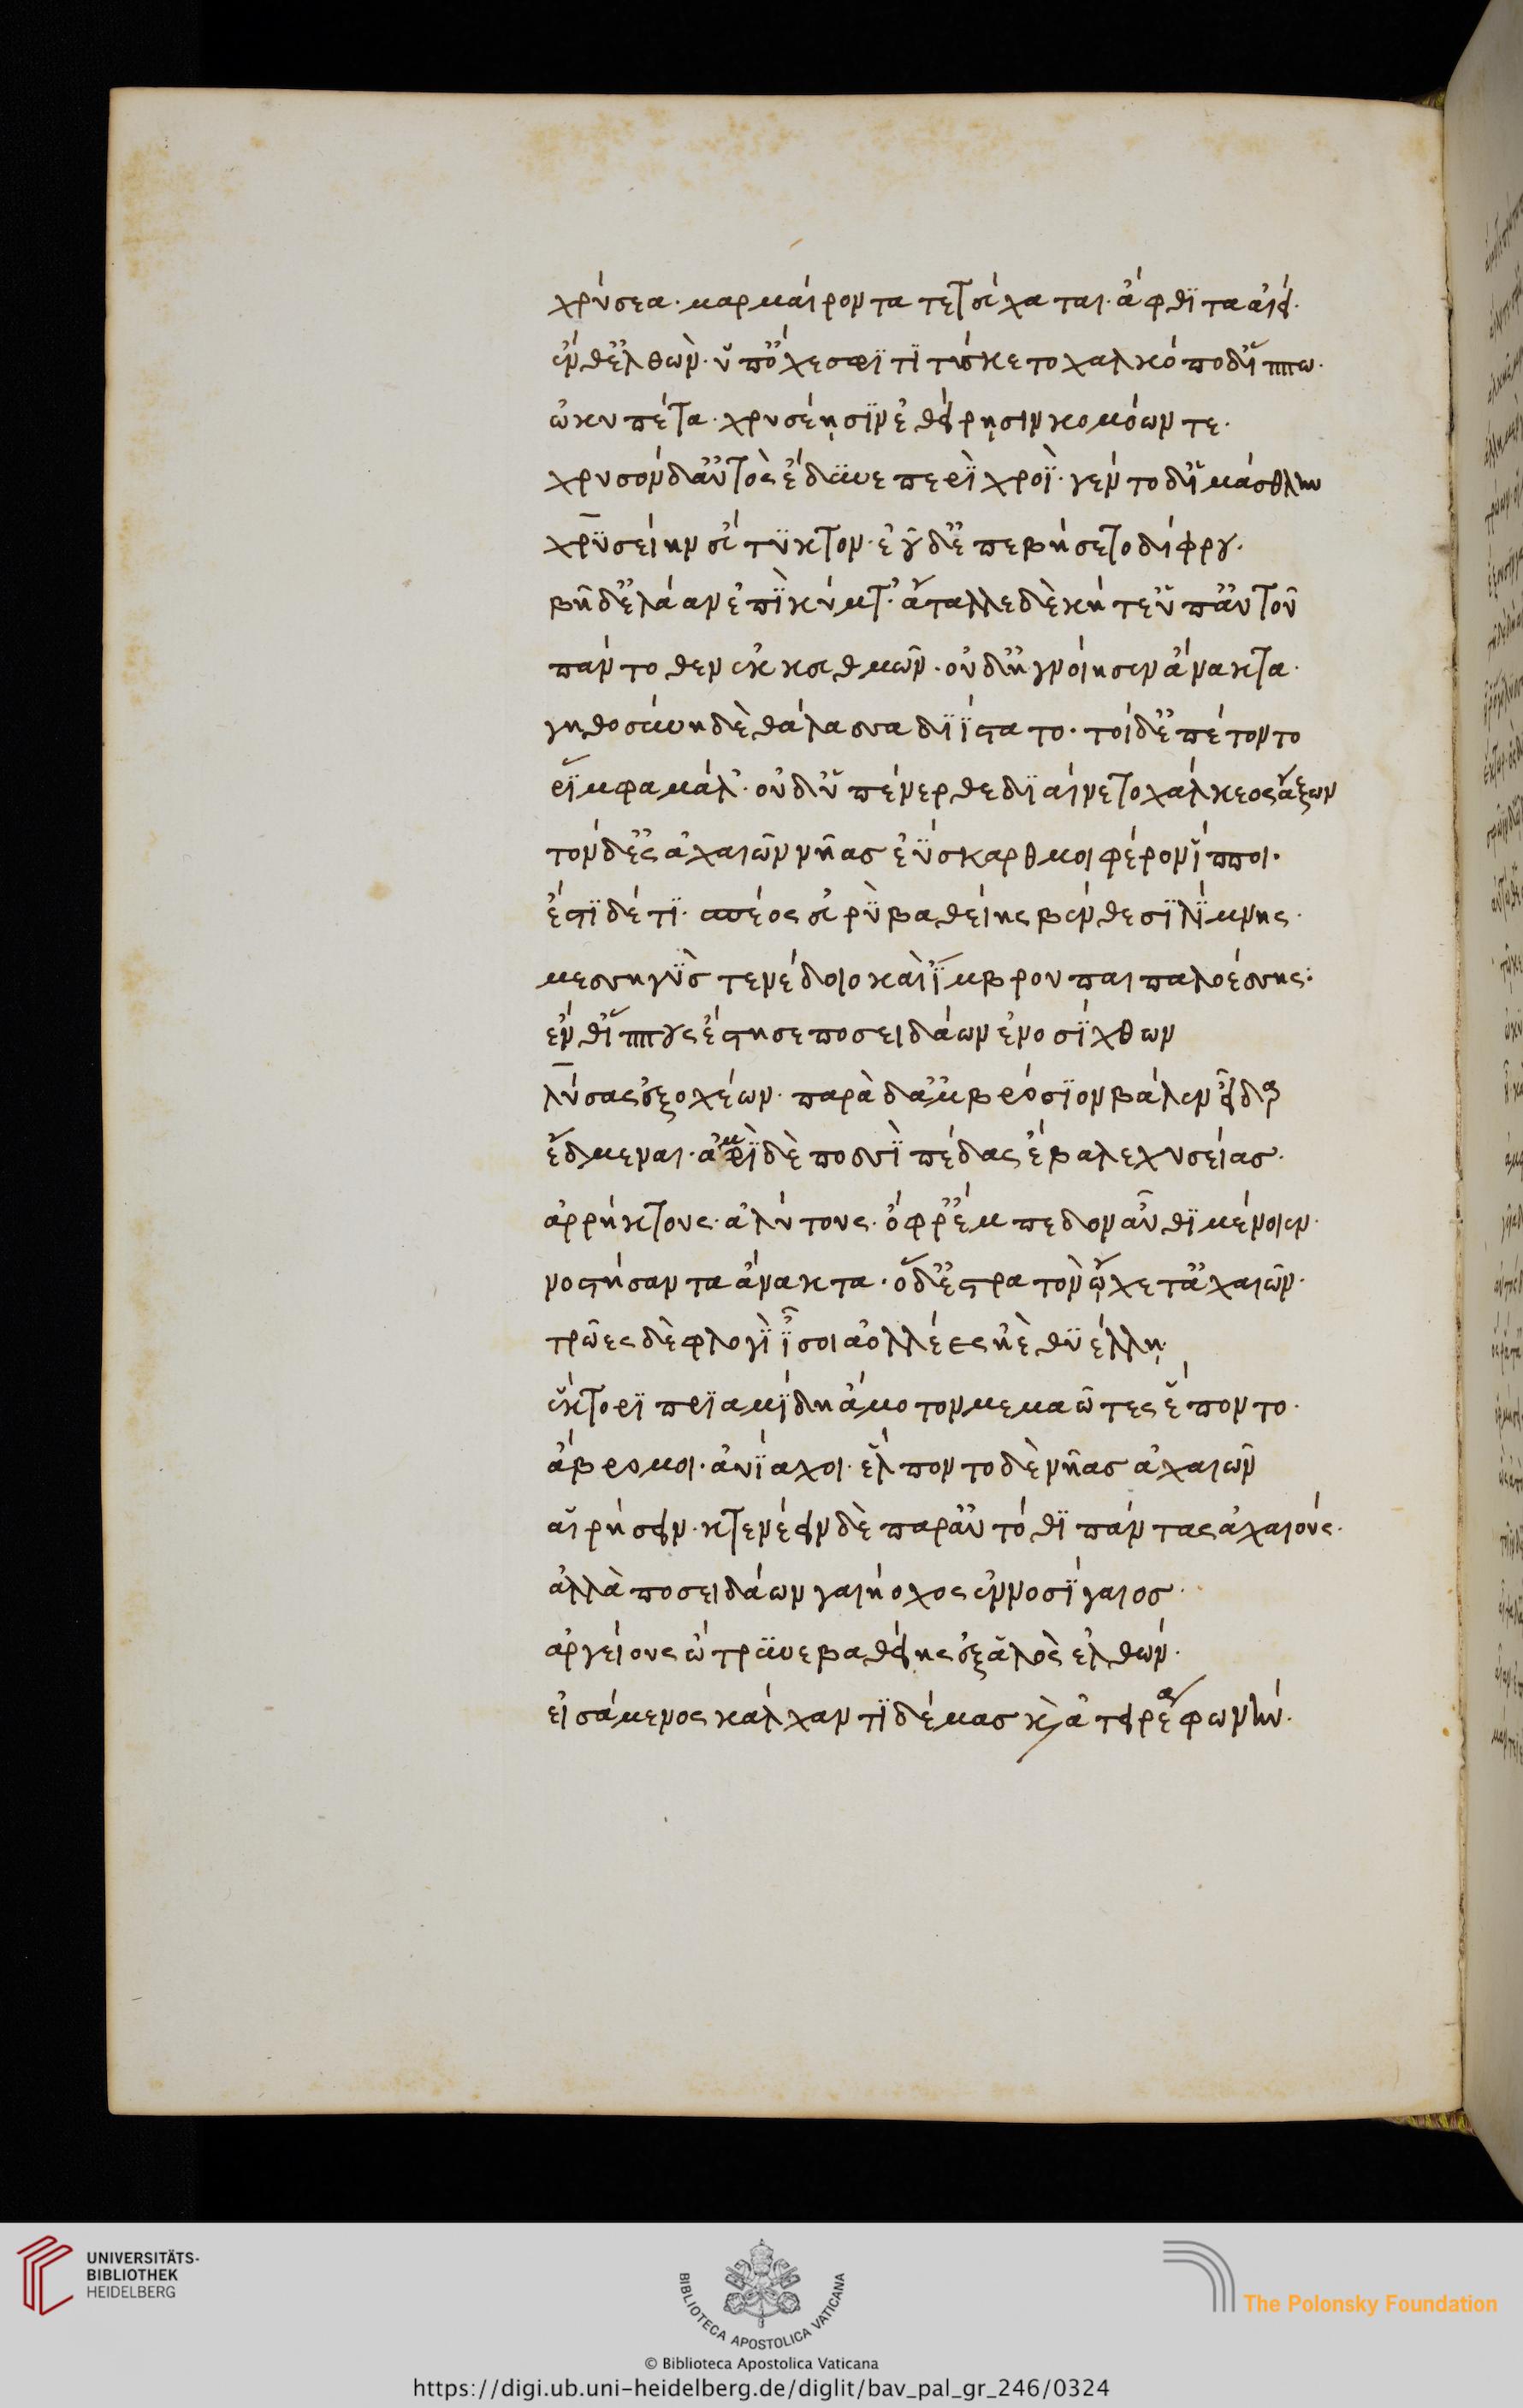 χρύσεα· μαρμαίροντα τετεύχαται· ἄφθϊτα αἰεί·
ἔνθ' ἐλθὼν· ὑπ' ὄχεσφϊ τϊτύσκετο χαλκόποδ' ἵππω·
ὠκυπέτα· χρυσέῃσϊν ἐθείρῃσιν κομόωντε·
χρυσὸν δ' αὐτὸς ἔδϋνε περὶ χροΐ· γέντο δ' ἱμάσθλην
χρϋσείην εὔτϋκτον· ἑοῦ δ' ἐπεβήσετο δίφρου·
βῆ δ' ἐλάαν ἐπὶ κύματ'· ἄταλλε δὲ κήτε' ὑπ' αὐτοῦ
πάντοθεν ἐκ κευθμῶν· οὐδ' ἠγνοίησεν ἄνακτα·
γηθοσύνη δὲ θάλασσα διΐστατο· τοὶ δ' ἐπέτοντο
ῥίμφα μάλ'· οὐδ' ὑπένερθε διαίνετο χάλκεος ἄξων
τὸν δ' ἐς ἀχαιῶν νῆας ἐΰσκαρθμοι φέρον ἵπποι·
ἔστϊ δέ τϊ· σπέος εὐρὺ βαθείης βένθεσϊ λίμνης·
μεσσηγὺς τενέδοιο καὶ ἴμβρου παιπαλοέσσης·
ἔνθ' ἵππους ἔστησε ποσειδάων ἐνοσίχθων
λύσας ἐξ ὀχέων· παρὰ δ' ἀμβρόσϊον βάλεν εἶδαρ
ἔδμεναι· ἀμφὶ δὲ ποσσὶ πέδας ἔβαλε χυσείας·
ἀρρήκτους· ἀλύτους· ὄφρ' ἔμπεδον αὖθϊ μένοιεν·
νοστήσαντα ἄνακτα· ὁ δ' ἐς στρατὸν ᾤχετ' ἀχαιῶν·
τρῶες δὲ φλογὶ ἶσοι ἀολλέες ἠὲ θϋέλλῃ·
ἕκτορϊ πρϊαμίδῃ ἄμοτον μεμαῶτες ἕποντο·
ἄβρομοι· ἀνίαχοι· ἔλποντο δὲ νῆας ἀχαιῶν
αἱρήσειν· κτενέειν δὲ παρ' αὐτόθϊ πάντας ἀχαιούς·
ἀλλὰ ποσειδάων γαιήοχος ἐννοσίγαιος·
ἀργείους ὤτρϋνε βαθείης ἐξ ἁλὸς ἐλθών·
εἰσάμενος κάλχαντϊ δέμας κὰι ἀτειρέα φωνήν·
UNIVERSITÄTS-
BIBLIOTHEK
HEIDELBERG
BIBLIOTECA APOSTOLICA VATICANA
The Polonsky Foundation
© Biblioteca Apostolica Vaticana
https://digi.ub.uni-heidelberg.de/diglit/bav_pal_gr_246/0324